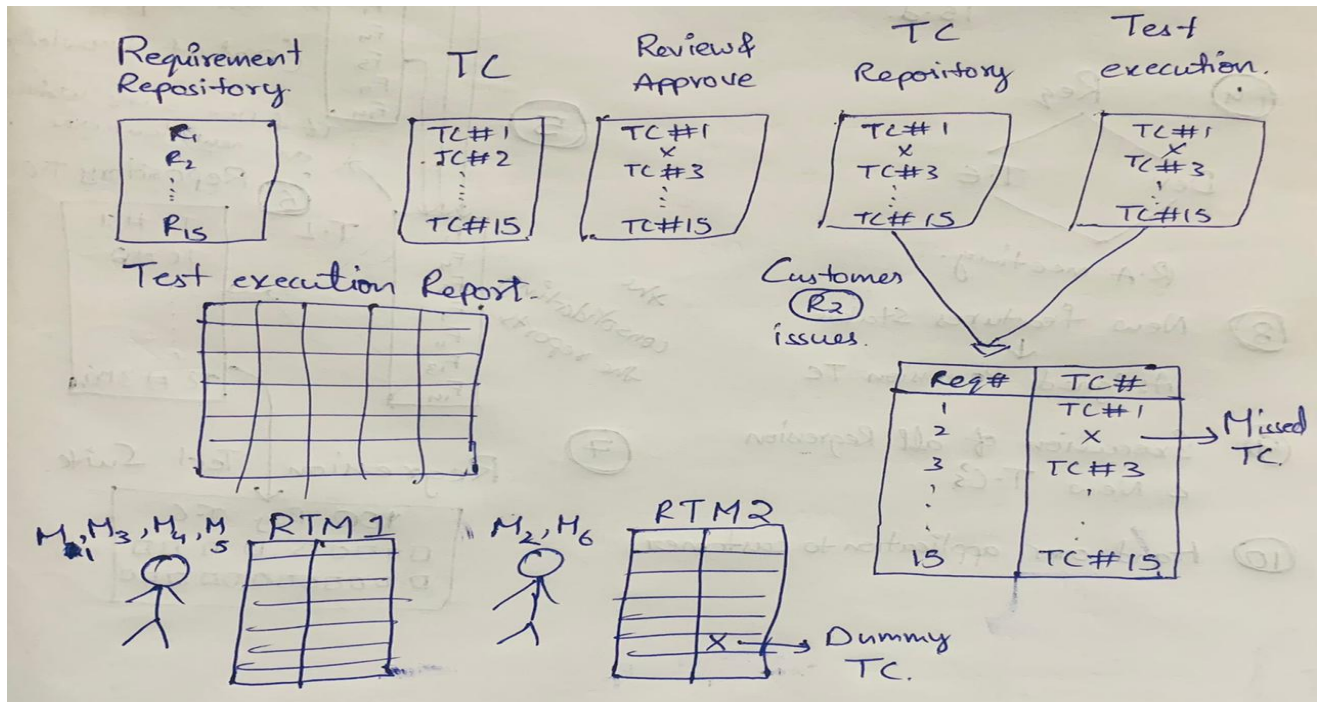 Requirement
Repository
R1
R2
R15
TC
TC#1
TC#2
TC#15
Review &
Approve
TC#1
X
TC#3
TC#15
TC
Repository
TC#1
X
TC#3
TC#15
Test
execution.
TC#1
X
TC#3
TC#15
Test execution Report.
Customer
R2
issues.
Req# TC#
1 TC#1
2 X → Missed
TC.
3 TC#3
15 TC#15
M1, M3, M4, M5
RTM1
M2, M6
RTM2
X → Dummy
TC.